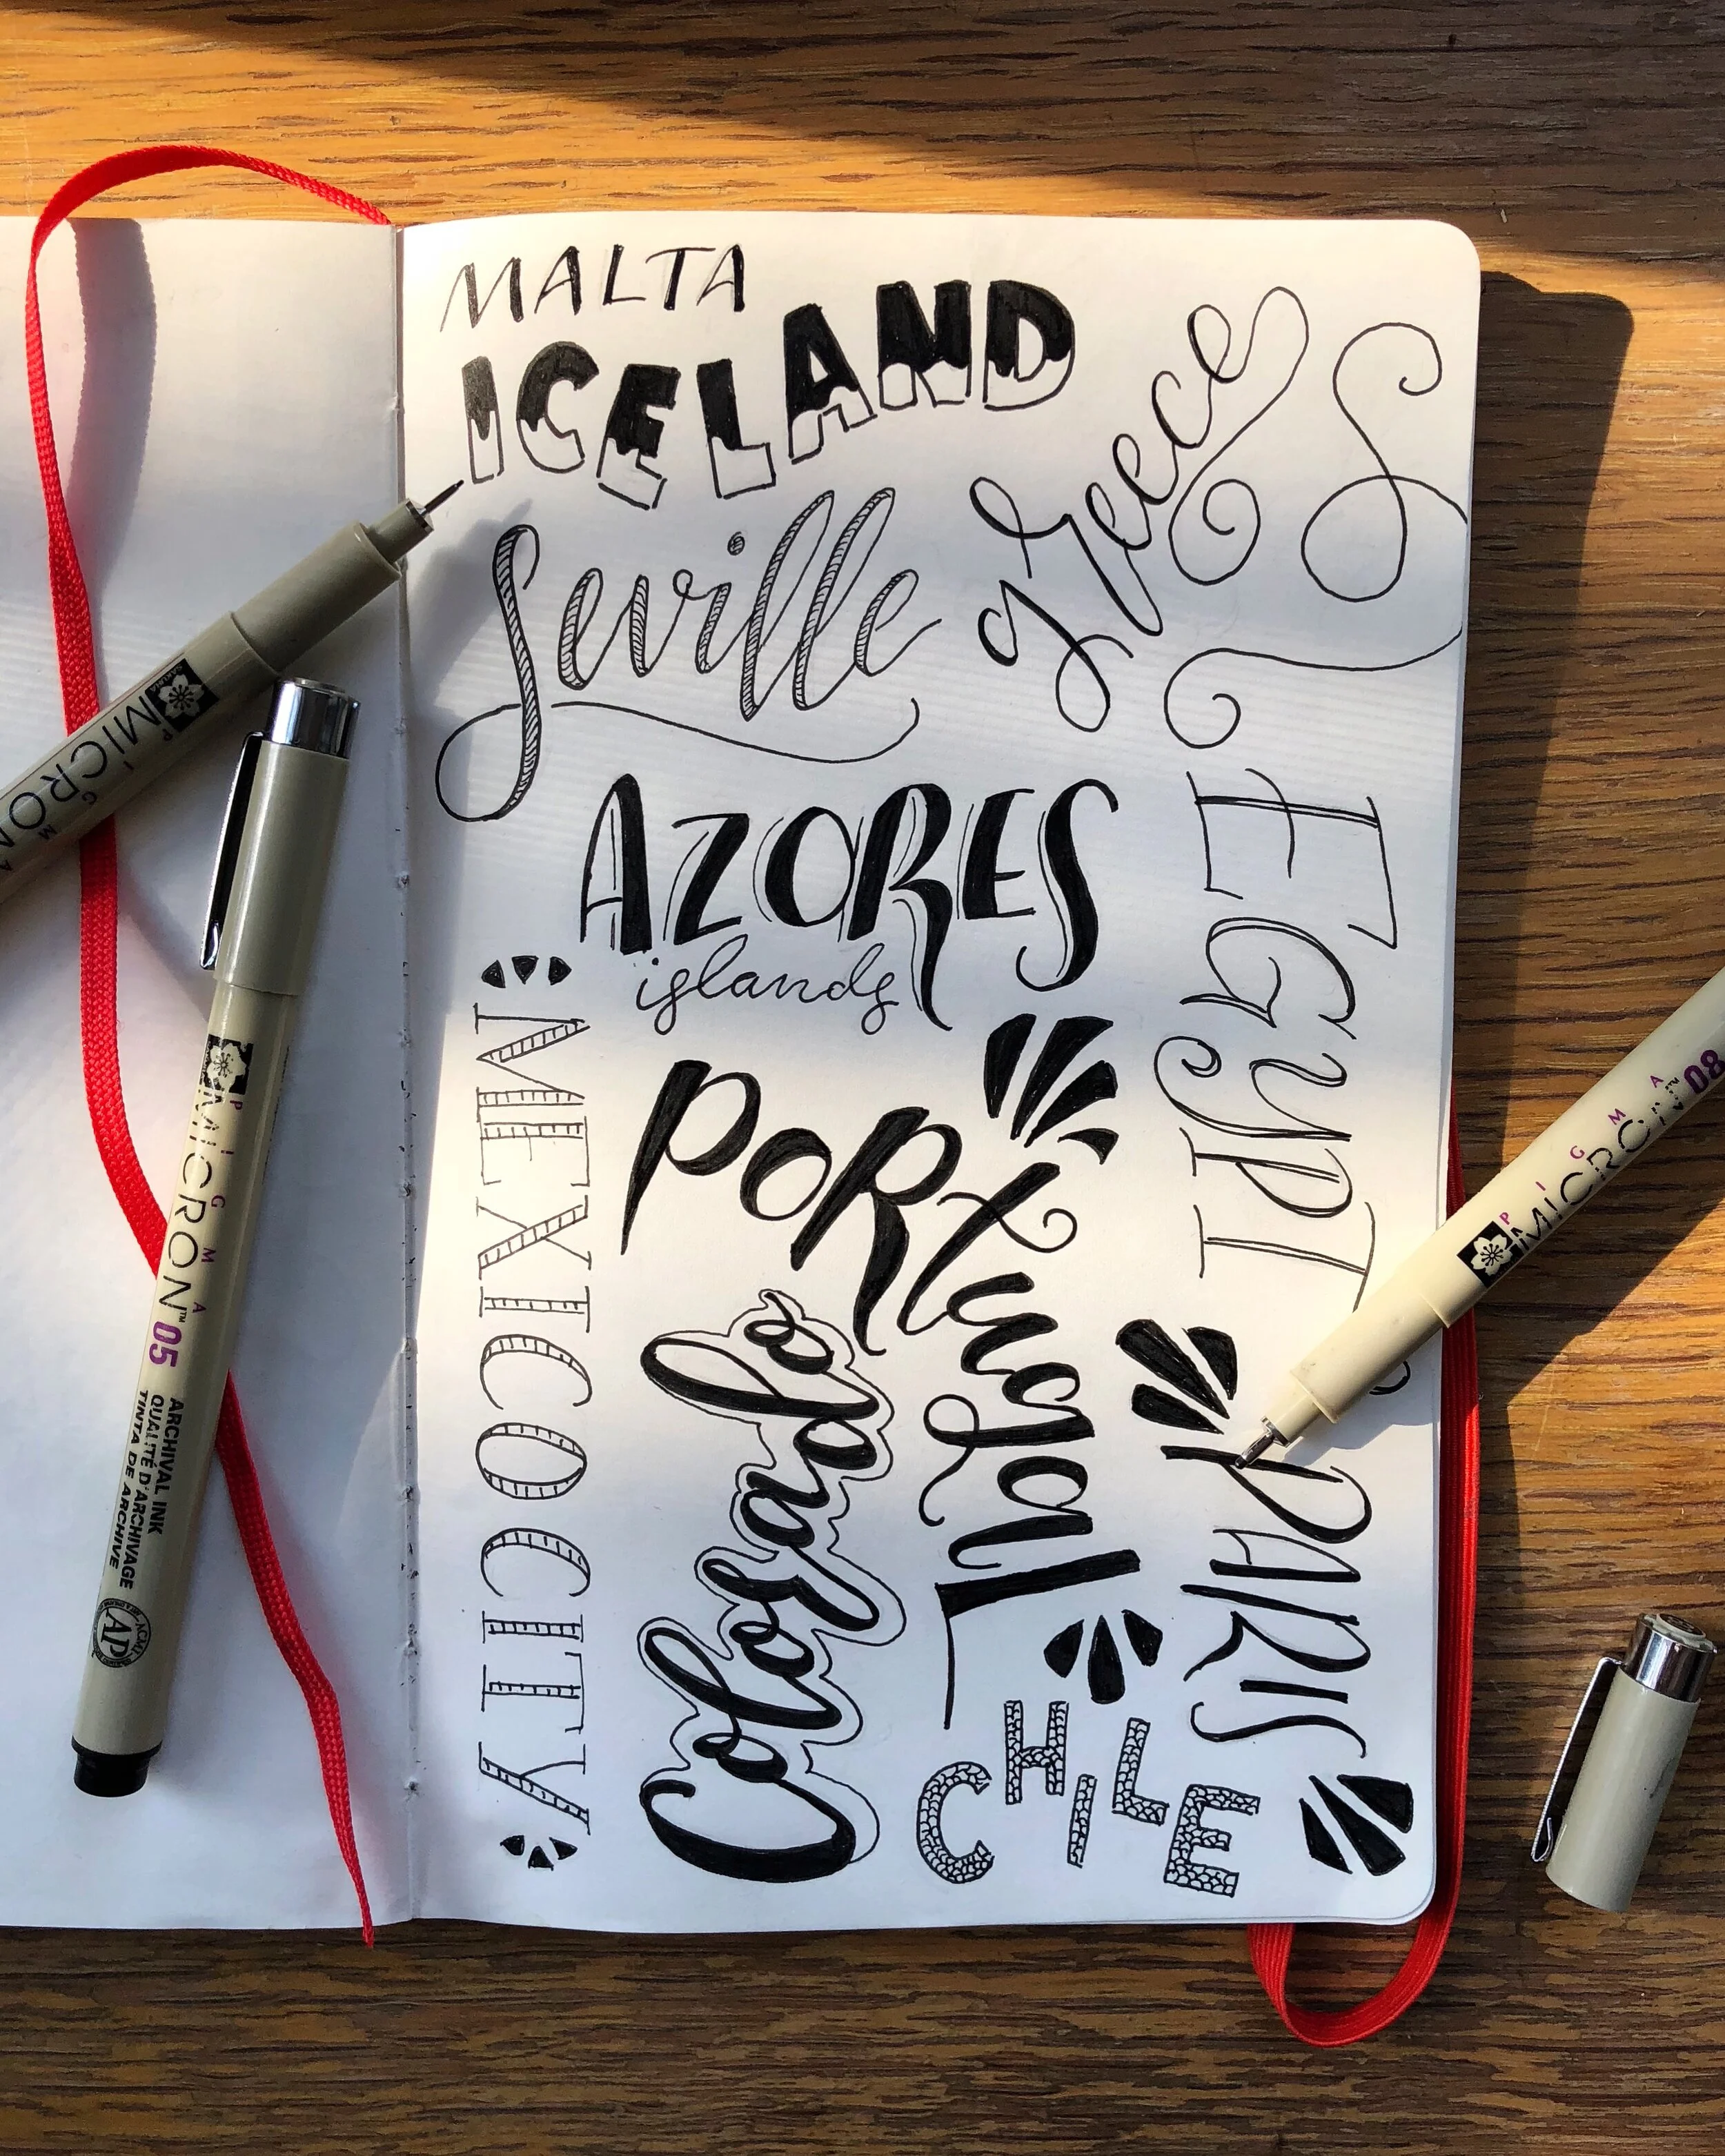 MALTA
ICELAND
Greece
Seville
AZORES
islands
EGYPT
MEXICO CITY
PORTugal
Colorado
PARIS
CHILE
PIGMA
MICRON
PIGMA
MICRON™ 05
ARCHIVAL INK
QUALITÉ D'ARCHIVAGE
TINTA DE ARCHIVE
AP
PIGMA
MICRON™ 08